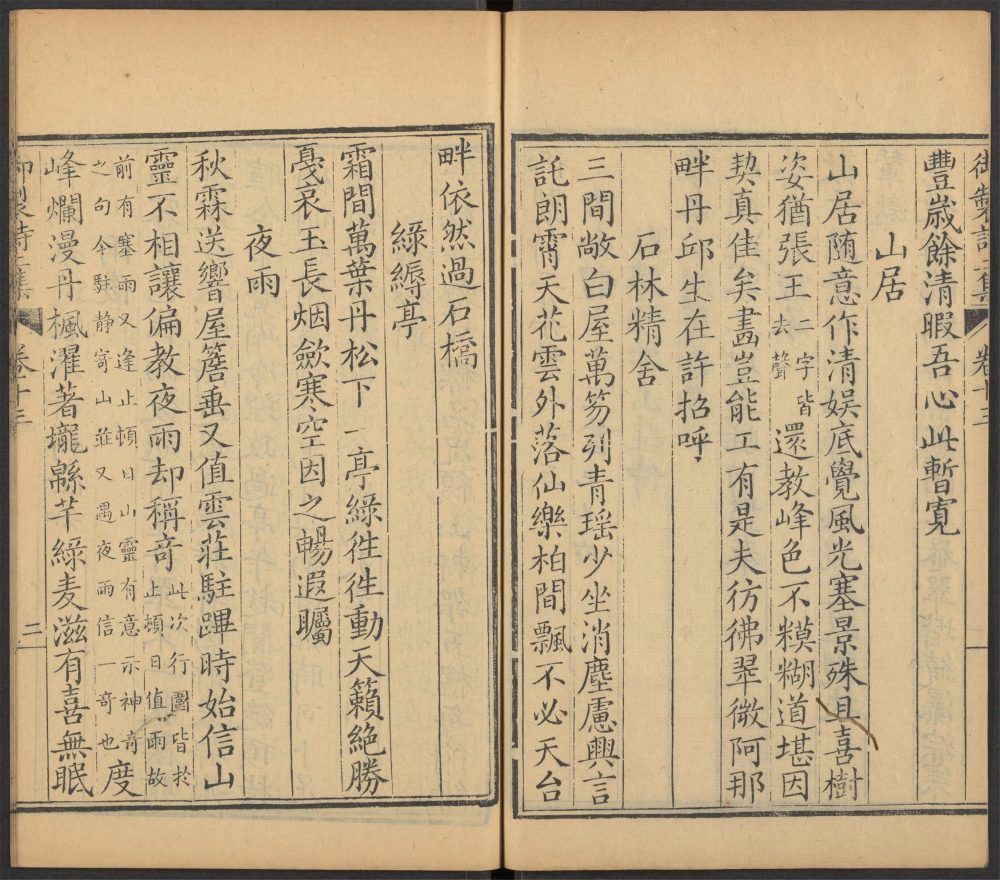 御製詩二集 卷十三 一
豐歲餘清暇吾心此暫寬
山居
山居随意作清娱底覺風光塞景殊且喜樹
姿猶張王二字皆去聲還教峰色不糢糊道堪因
契真佳矣畵豈能工有是夫彷彿翠微阿那
畔丹邱生在許招呼
石林精舍
三間敞白屋萬笏列青瑶少坐消塵慮興言
託朗霄天花雲外落仙樂柏間飄不必天台
畔依然過石橋
綠縟亭
霜間萬葉丹松下一亭綠徃徃動天籟絶勝
戞哀玉長烟歛寒空因之暢遐矚
夜雨
秋霖送響屋簷垂又值雲莊駐蹕時始信山
靈不相讓偏教夜雨却稱竒此次行圍皆於止頓日值雨故
前有塞雨又逢止頓日山靈有意示神竒之句今駐静寄山莊又遇夜雨信一竒也度
峰爛漫丹楓濯著壠緜芊綠麦滋有喜無眠
御製詩二集 卷十三 二